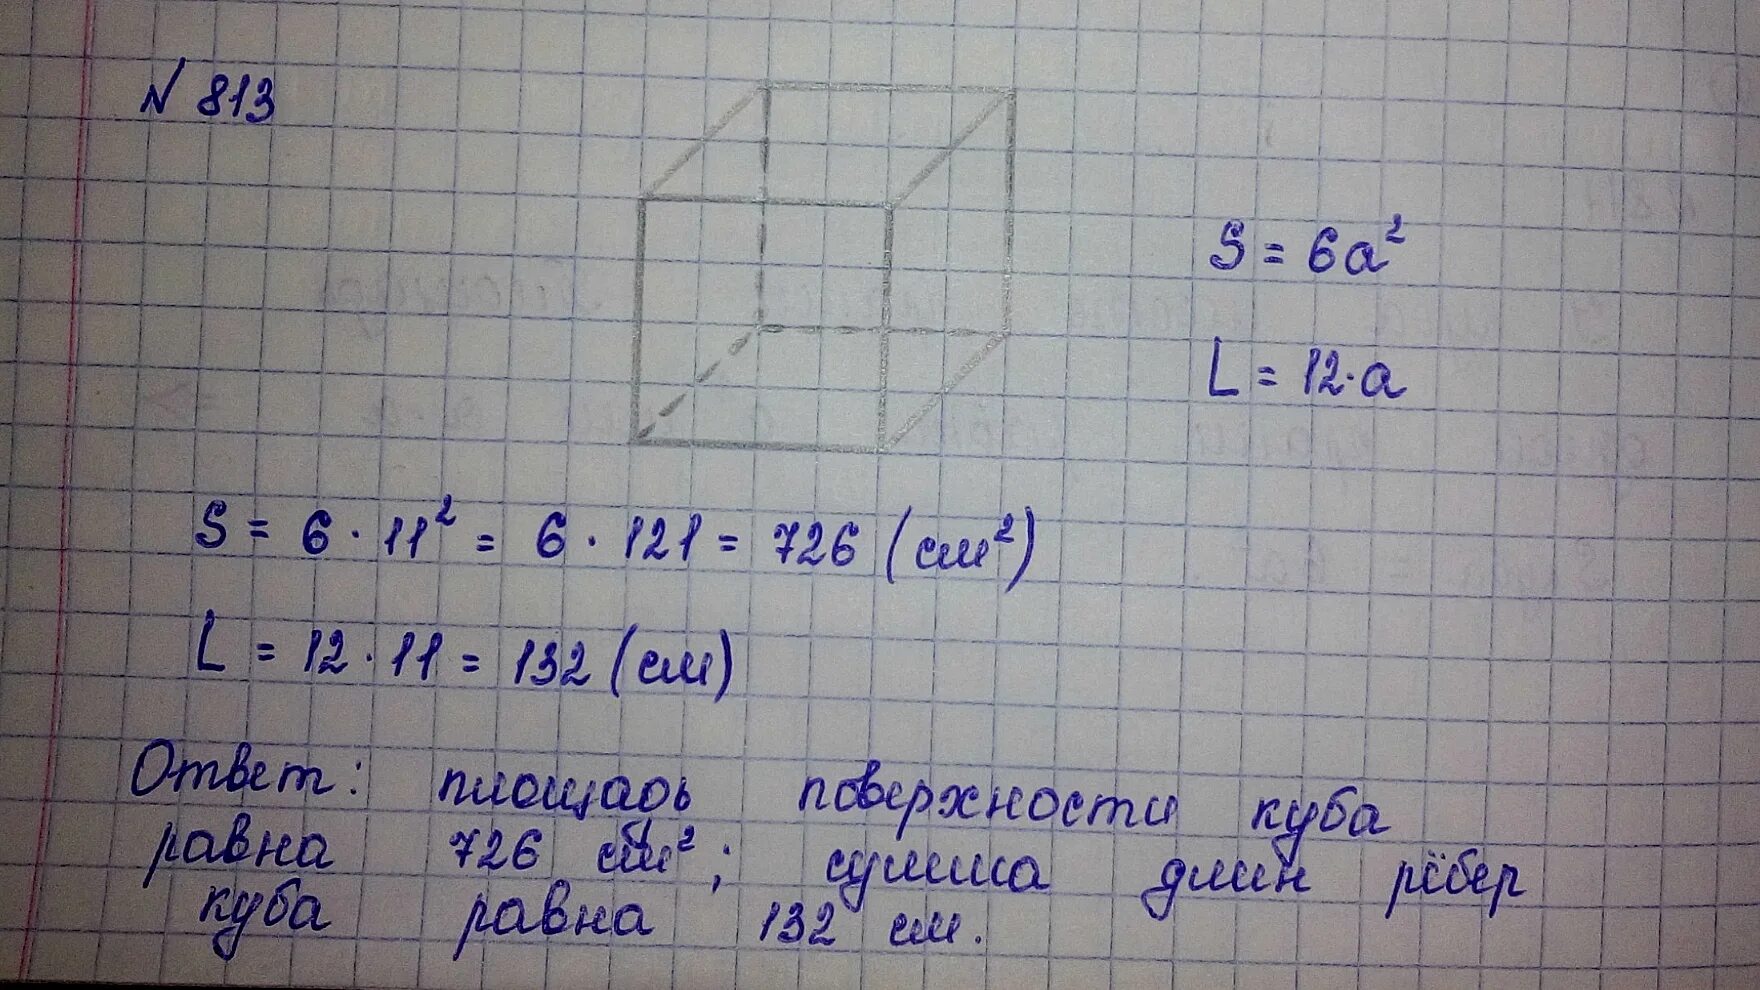 N 813
S = 6a²
L = 12·a
S = 6 · 11² = 6 · 121 = 726 (см²)
L = 12 · 11 = 132 (см)
Ответ: площадь поверхности куба
равна 726 см²; сумма длин рёбер
куба равна 132 см.